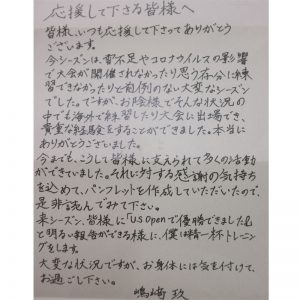 応援して下さる皆様へ
皆様、いつも応援して下さってありがとう
ございます。
今シーズンは、雪不足やコロナウイルスの影響
で大会が開催されなかったり思う存分に練
習できなかったりと前例のない大変なシーズン
でした。ですが、お陰様でそんな状況の
中でも海外で練習したり大会に出場でき、
貴重な経験をすることができました。本当に
ありがとうございました。
今までも、こうして皆様に支えられて多くの活動
ができていました。それに対する感謝の気持ち
を込めて、パンフレットを作成していただいたので、
是非読んでみて下さい。
来シーズン、皆様に「US Openで優勝できました!」
と明るい報告ができる様に、僕は精一杯トレーニ
ングをします。
大変な状況ですが、お身体には気を付けて、
お過ごし下さい。
嶋﨑 玖